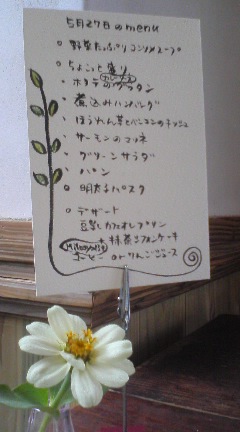 5月27日のmenu
○ 野菜たっぷりコンソメスープ
○ ちょこっと盛り
・ホタテのグラタン
・煮込みハンバーグ
・ほうれん草とベーコンのキッシュ
・サーモンのマリネ
・グリーンサラダ
・パン
○ 明太子パスタ
○ デザート
豆乳カフェオレプリン
+抹茶シフォンケーキ
コーヒー orりんごジュース